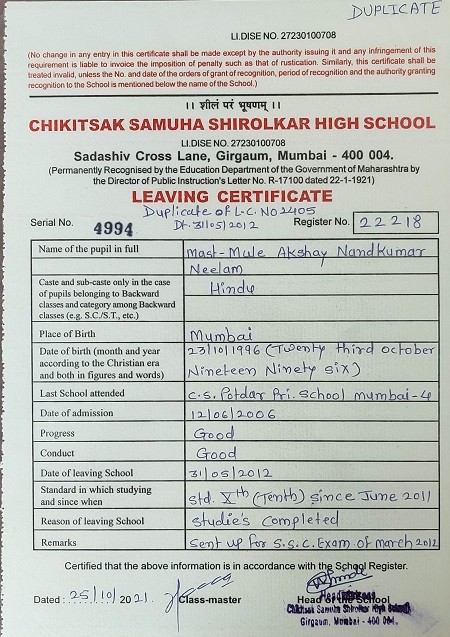 DUPLICATE
LI.DISE NO. 27230100708
(No change in any entry in this certificate shall be made except by the authority issuing it and any infringement of this
requirement is liable to invoice the imposition of penalty such as that of rustication. Similarly, this certificate shall be
treated invalid, unless the No. and date of the orders of grant of recognition, period of recognition and the authority granting
recognition to the School is mentioned below the name of the School.)
।। शीलं परं भूषणम् ।।
CHIKITSAK SAMUHA SHIROLKAR HIGH SCHOOL
LI.DISE NO. 27230100708
Sadashiv Cross Lane, Girgaum, Mumbai - 400 004.
(Permanently Recognised by the Education Department of the Government of Maharashtra by
the Director of Public Instruction's Letter No. R-17100 dated 22-1-1921)
LEAVING CERTIFICATE
Duplicate of L.C. NO 2405
Serial No. 4994 Dt. 31/05/2012 Register No. 22218
Name of the pupil in full Mast- Mule Akshay Nandkumar
Neelam
Caste and sub-caste only in the case Hindu
of pupils belonging to Backward
classes and category among Backward
classes (e.g. S.C./S.T., etc.)
Place of Birth Mumbai
Date of birth (month and year 23/10/1996 (Twenty third october
according to the Christian era Nineteen Ninety six)
and both in figures and words)
Last School attended C.S. Potdar Pri. School Mumbai-4
Date of admission 12/06/2006
Progress Good
Conduct Good
Date of leaving School 31/05/2012
Standard in which studying Std. Xth (Tenth) since June 2011
and since when
Reason of leaving School Studie's completed
Remarks Sent up for S.S.C. Exam of March 2012
Certified that the above information is in accordance with the School Register.
Dated : 25/10/2021. Class-master Head of the School
Chikitsak Samuha Shirolkar High School
Girgaum, Mumbai - 400 004.